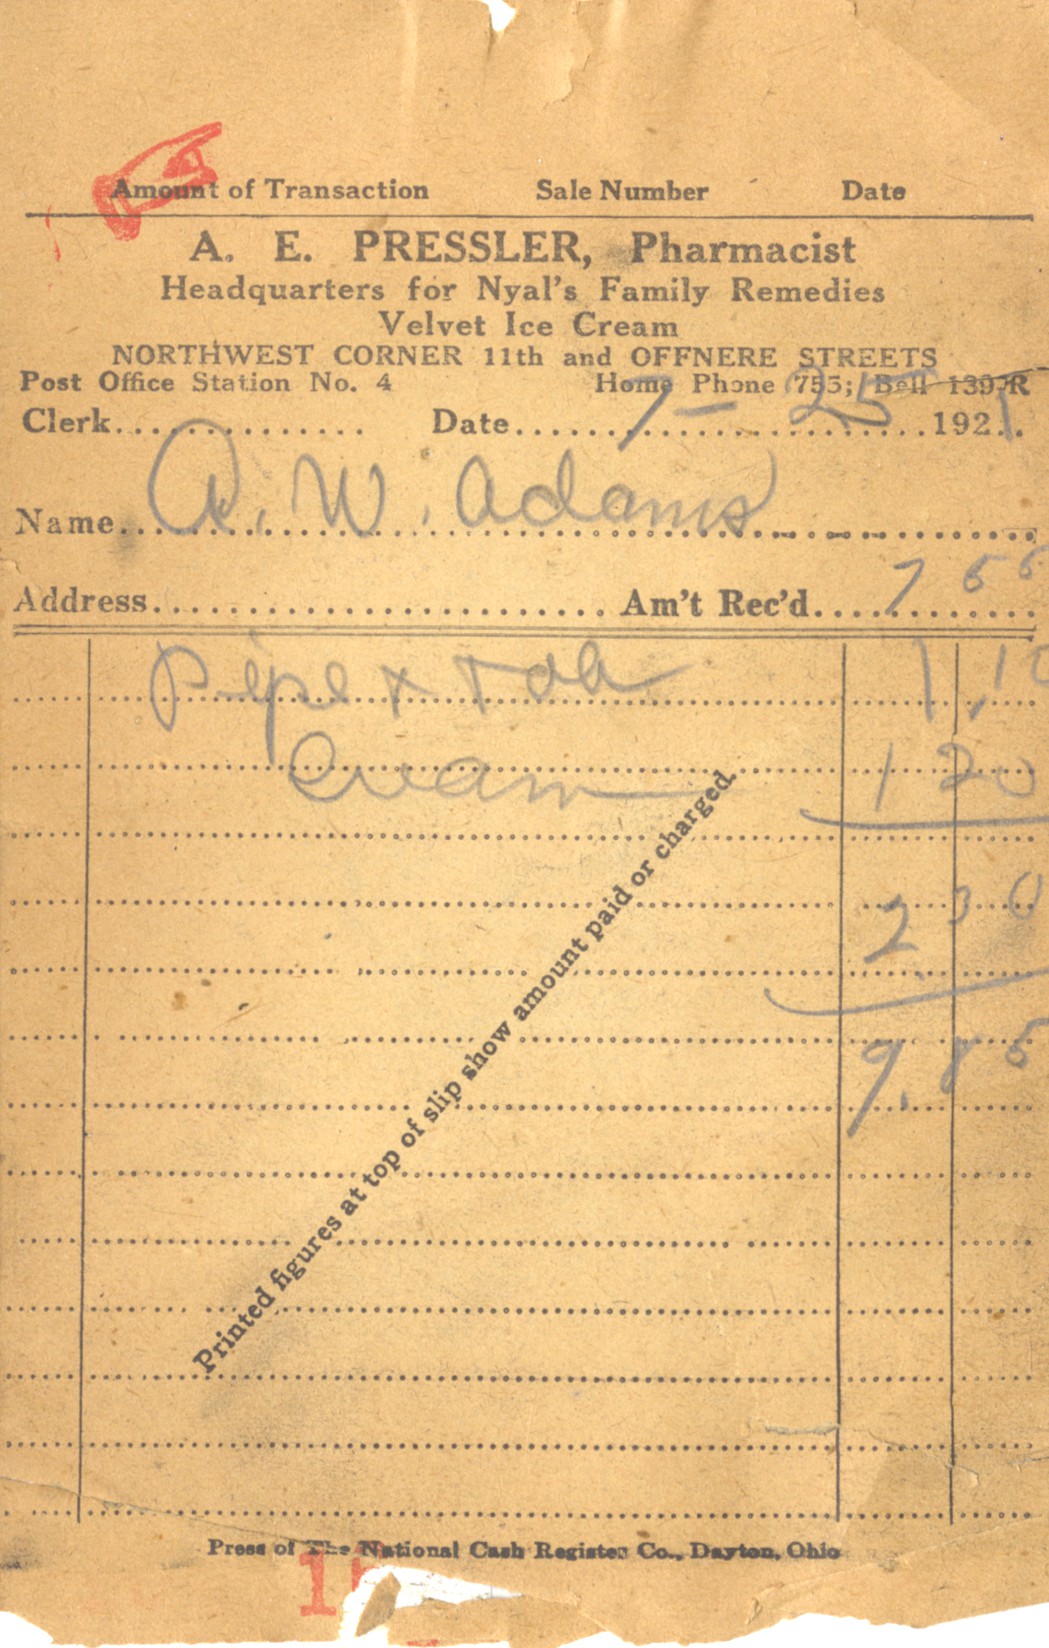 Amount of Transaction Sale Number Date
A. E. PRESSLER, Pharmacist
Headquarters for Nyal's Family Remedies
Velvet Ice Cream
NORTHWEST CORNER 11th and OFFNERE STREETS
Post Office Station No. 4 Home Phone 755; Bell 139-R
Clerk.............. Date 7-25 1921
Name A. W. Adams
Address.......................... Am't Rec'd 7 55
Pipe + Tob 1,10
Cream 1 20
2 30
9.85
Printed figures at top of slip show amount paid or charged.
Press of The National Cash Register Co., Dayton, Ohio